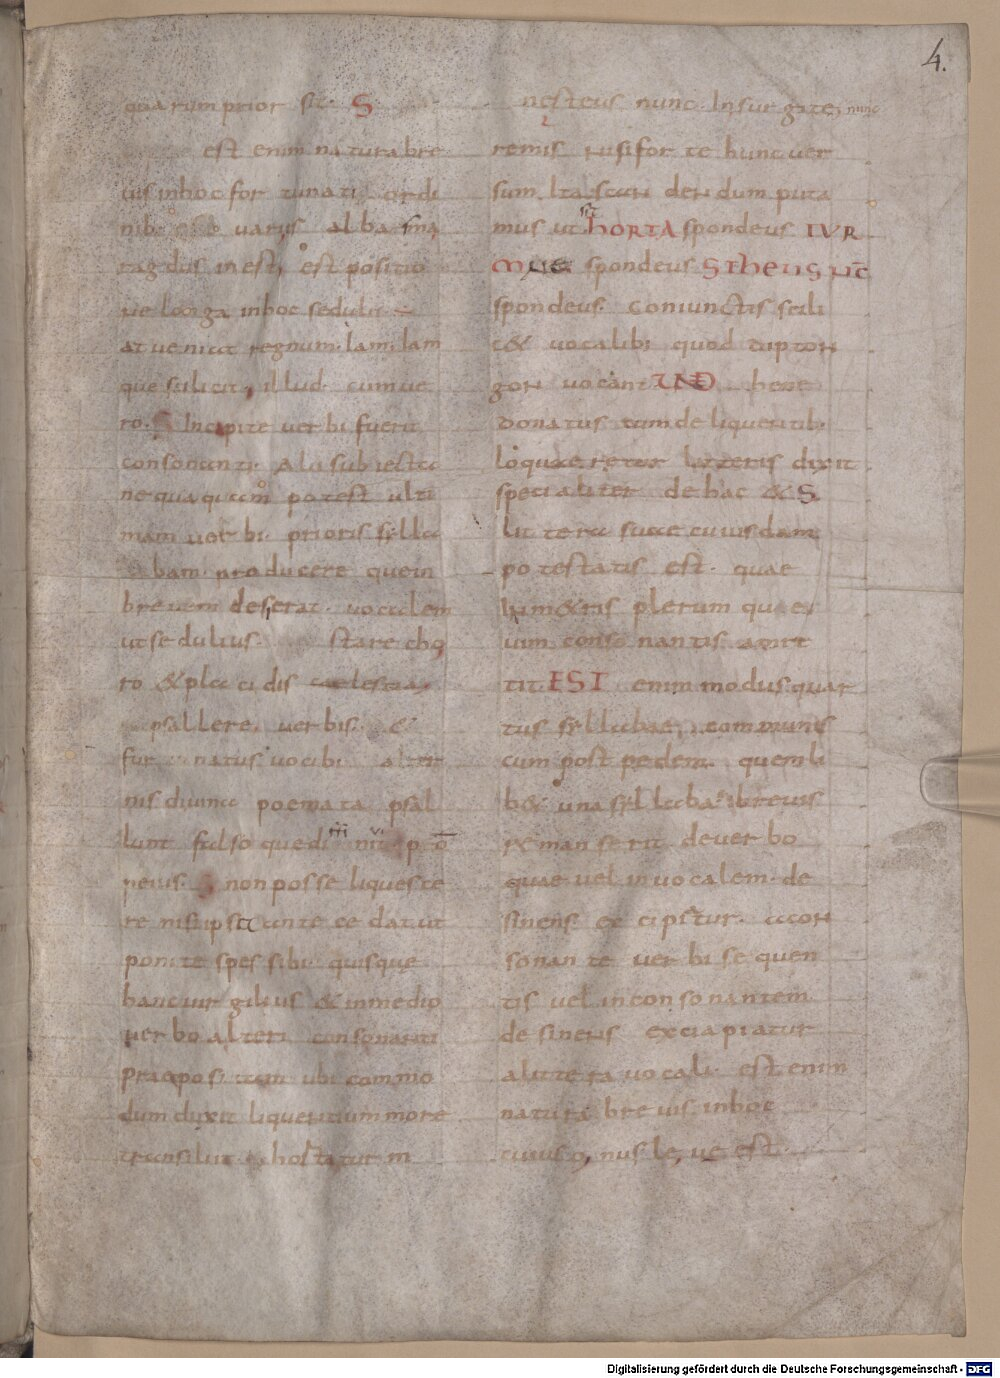 4.
quarum prior sit. S
est enim natura bre
uis in hoc fortunatiordi
nib; uariis alba sma
ragdus inest; est positio
ne longa in hoc sedulii ÷
at ueniat regnum. Iam. Iam
que scilicit, illud. cum ue
ro. S Incipite uerbi fuerit
consonanti. Alii subiecta
nequaquam potest ulti
mam uerbi prioris sylla
bam producere quein
breuem deserat. uocalem
ut sedulius. stare cho
ro & placidis caelestia
psallere. uerbis. &
fur natus uocibi alter
nis diuina poemata psal
lunt falso quedi
peius. S non posse liqueste
re nisi ipsa ante ce dat ut
ponite spes sibi quisque
hanc uirgilius & in medio
uerbo alteri consonanti
praepositam ubi commo
dum dixit liquentium more
transiluit. hortatur m
nesteus nunc. Insurgite nunc
remis rusi for te hunc uer
sum. Ita scandendum puta
mus ut HORTA spondeus TVR
MNE spondeus STheus NC
spondeus. Coniunctis scili
c& uocalibi quod dipton
gon uocant UND hene
Donatus tum de liquentib;
loquae retur litteris dixit
specialiter de hac & S
littera suae cuiusdam
potestatis est. quae
in m&ris plerum que
uim consonantis amit
tit. EST enim modus quar
tus syllabae communis
cum post pedem quemli
b& una syllaba breuis
remanserit de uerbo
quae uel in uocalem. de
sinens excipitur. a con
sonante uerbi sequen
tis uel in consonantem
desinens excipiatur
a littera uocali. est enim
natura breuis in hoc
cuius onus leue est.
Digitalisierung gefördert durch die Deutsche Forschungsgemeinschaft - DFG